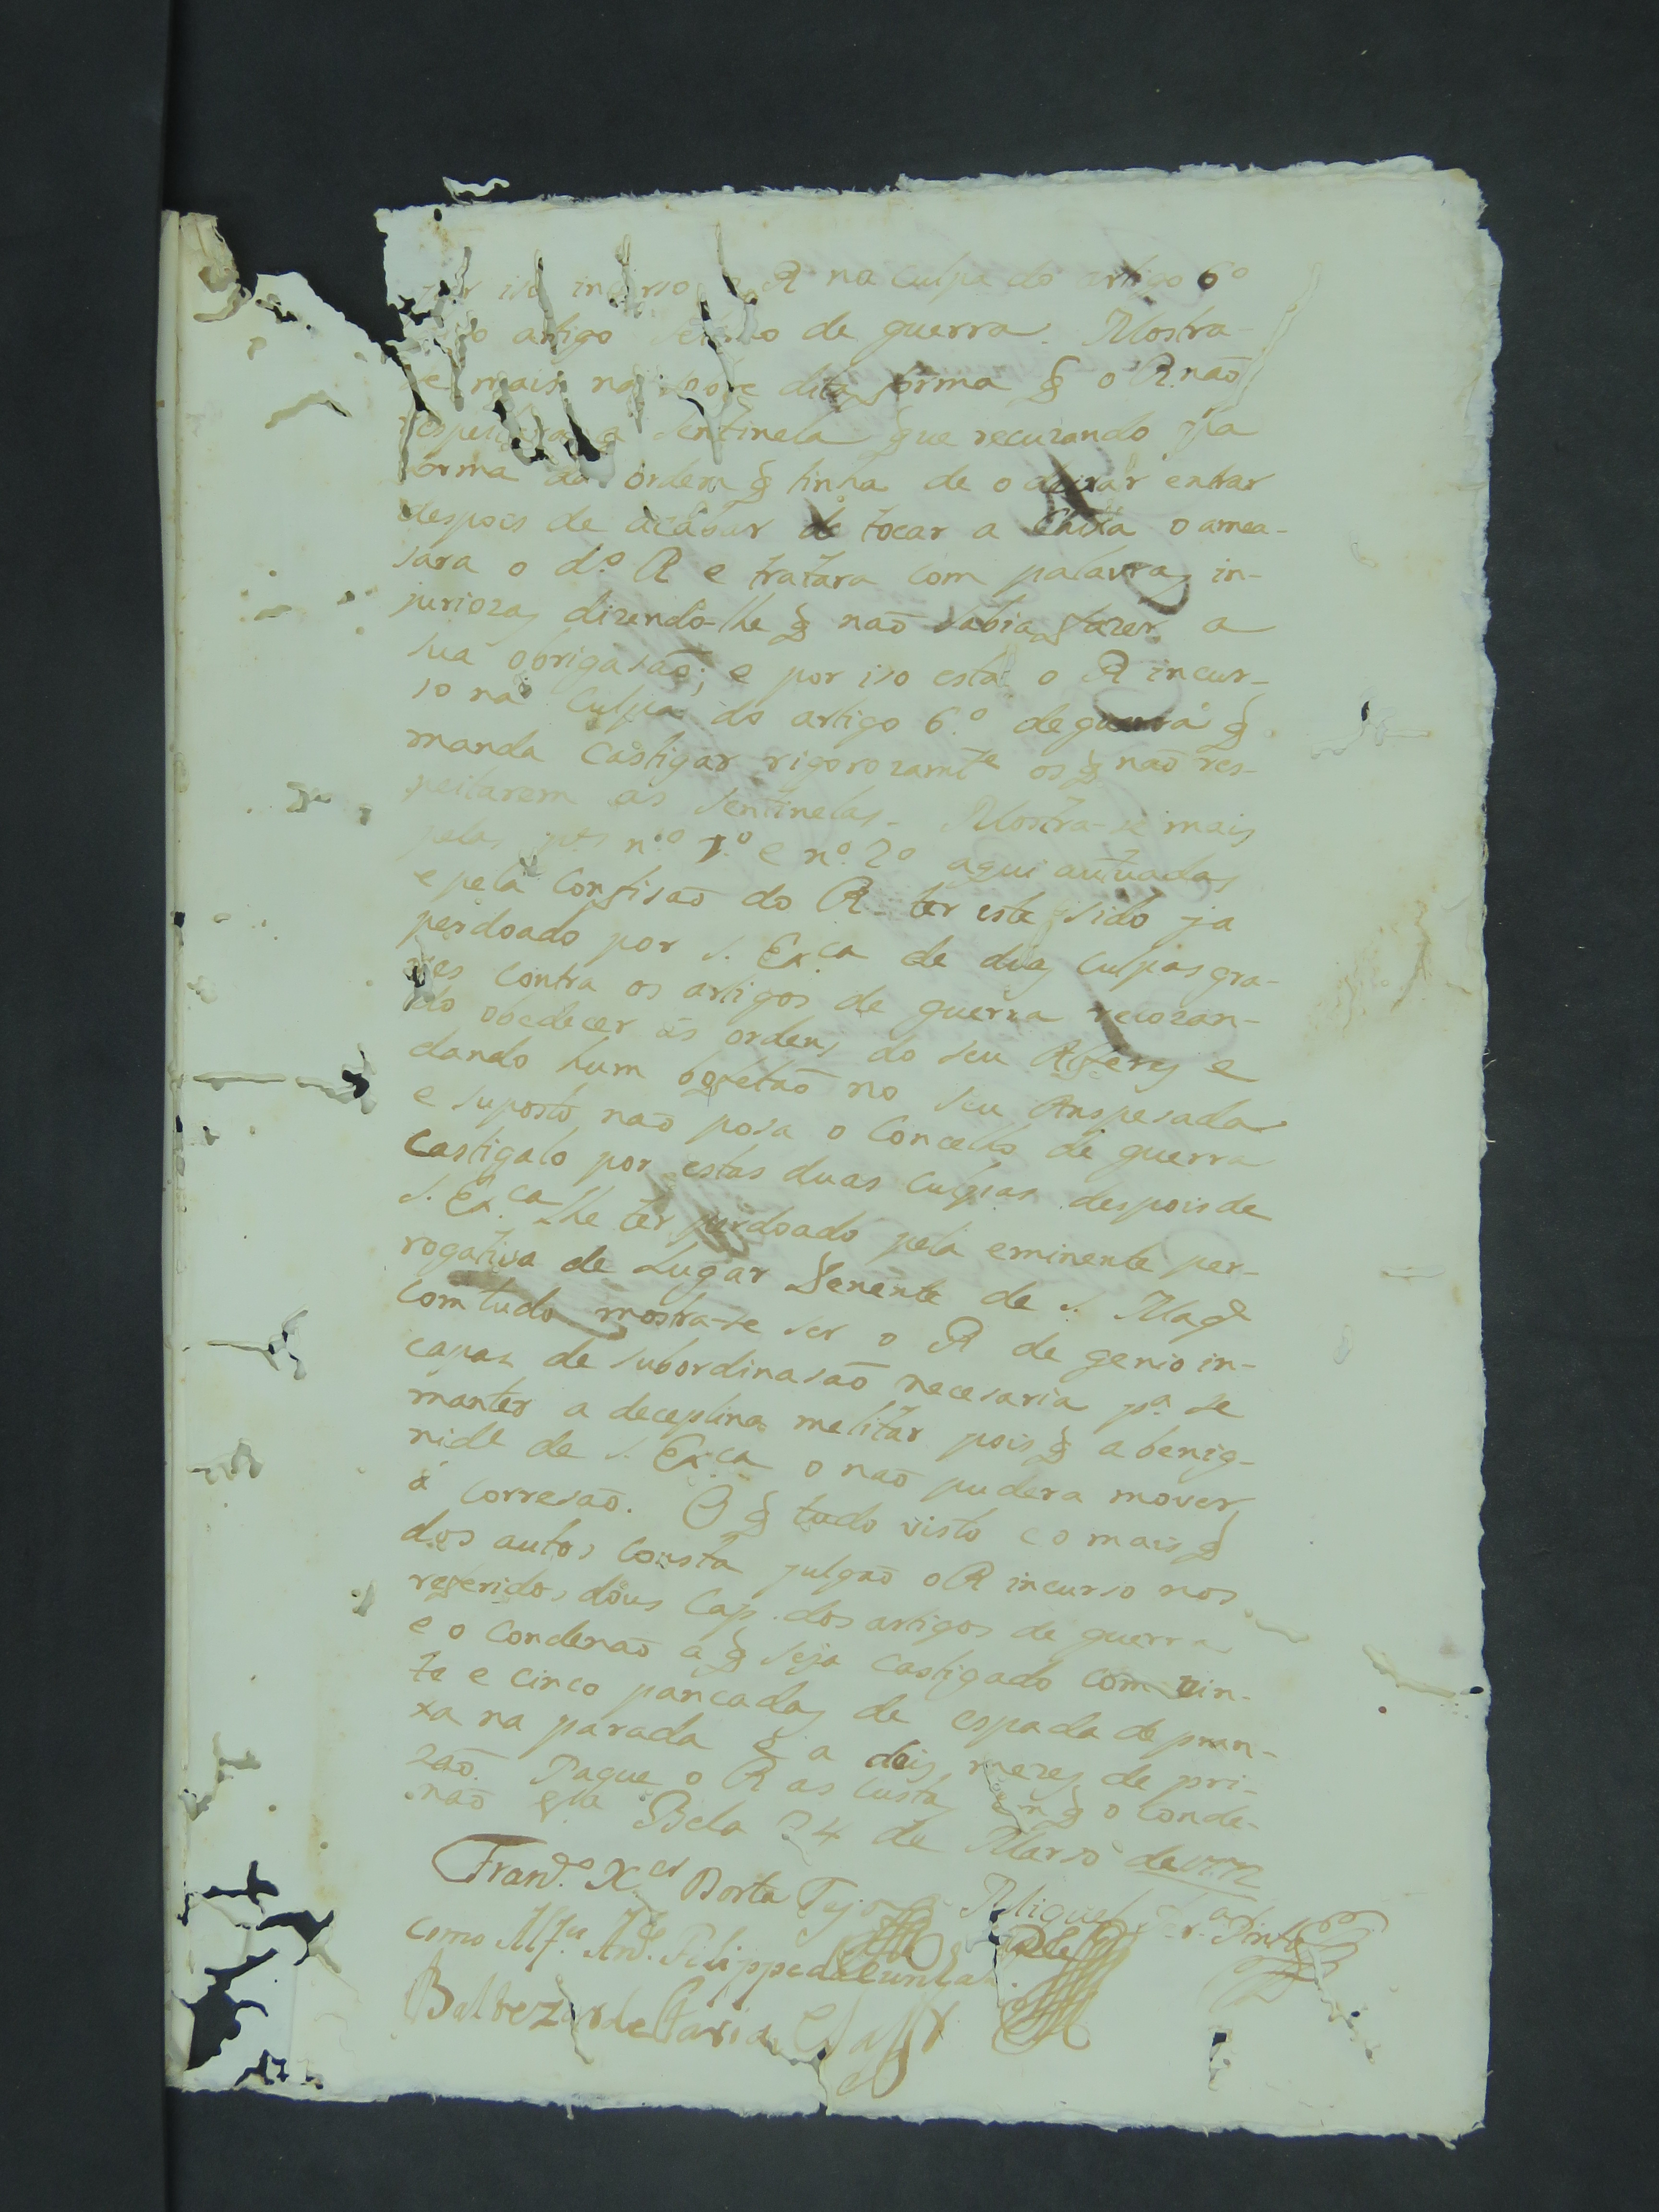 por iso incurso o R na culpa do artigo 6º
do artigo setimo de guerra. Mostra-
se mais na sobre dita forma q̃ o R. naõ
respeitara a Sentinela que recuzando pla
forma da ordem q̃ tinha de o deixar entrar
despois de acabar de tocar a Caixa o amea-
sara o dº R e tratara com palavras in-
juriozas dizendo-lhe q̃ naõ sabia fazer a
sua obrigasaõ; e por iso está o R incur-
so na Culpa do artigo 6º de guerra q̃
manda Castigar rigorozamte os q̃ naõ res-
peitarem as Sentinelas. Mostra-se mais
pelas ptes nº 1º e nº 2º aqui autuadas
e pela Confisaõ do R. ter este sido ja
perdoado por S. Exca de duas Culpas gra-
ves contra os artigos de guerra recozan-
do obedecer ás ordens do seu Alferes e
dando hum bofetaõ no seu Anspesada
e suposto naõ posa o Concelho de guerra
Castigalo por estas duas Culpas despois de
S. Exca lhe ter perdoado pela eminente per-
rogativa de Lugar Tenente de S. Magde
Com tudo mostra-se ser o R de genio in-
capas de subordinasaõ necesaria pa se
manter a deceplina melitar pois q̃ a benig-
nide de S. Exca o naõ pudera mover
á Corresaõ. O q̃ tudo visto e o mais q̃
dos autos Consta julgaõ o R incurso nos
referidos dous Cap. dos artigos de guerra
e o Condenaõ a q̃ seja Castigado com vin-
te e cinco pancadas de espada de pran-
xa na parada e a dois mezes de pri-
zaõ. Pague o R as Custas em q̃ o Conde-
naõ Va Bela 24 de Marso de 1772
Franco Xer Dorta Tejo Miguel Pera Pinto
como Alfes Ande Filippe da Cunha
Baltezar de Faria